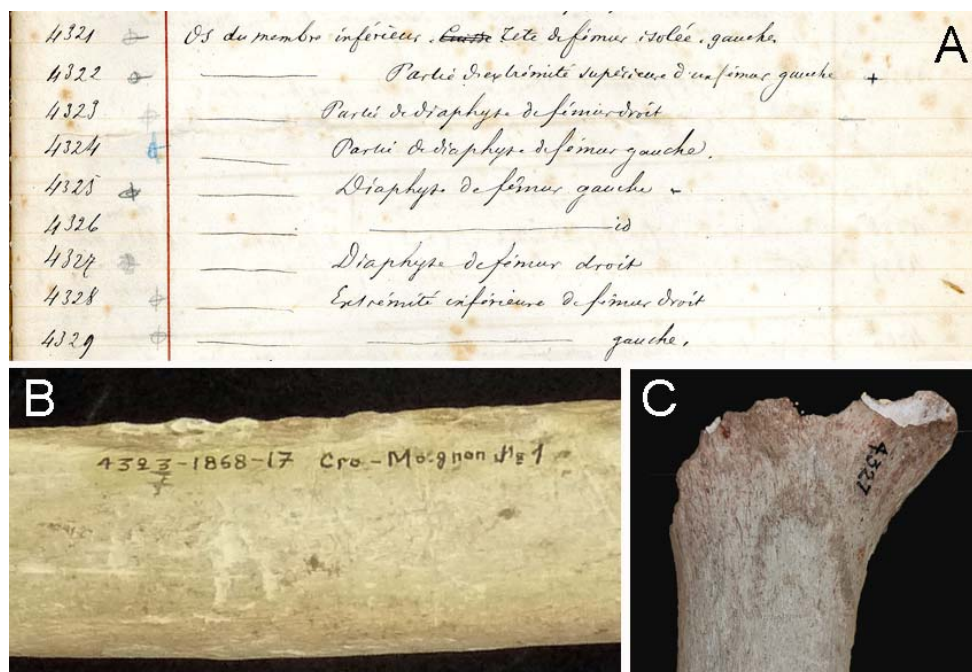 A
4321 Os du membre inférieur. Tête de fémur isolée. gauche.
4322 Partie d'extrémité supérieure d'un fémur gauche +
4323 Partie de diaphyse de fémur droit
4324 Partie de diaphyse de fémur gauche.
4325 Diaphyse de fémur gauche
4326 id
4327 Diaphyse de fémur droit
4328 Extrémité inférieure de fémur droit
4329 gauche.
B
4323-1868-17 Cro-Magnon № 1
C
4327